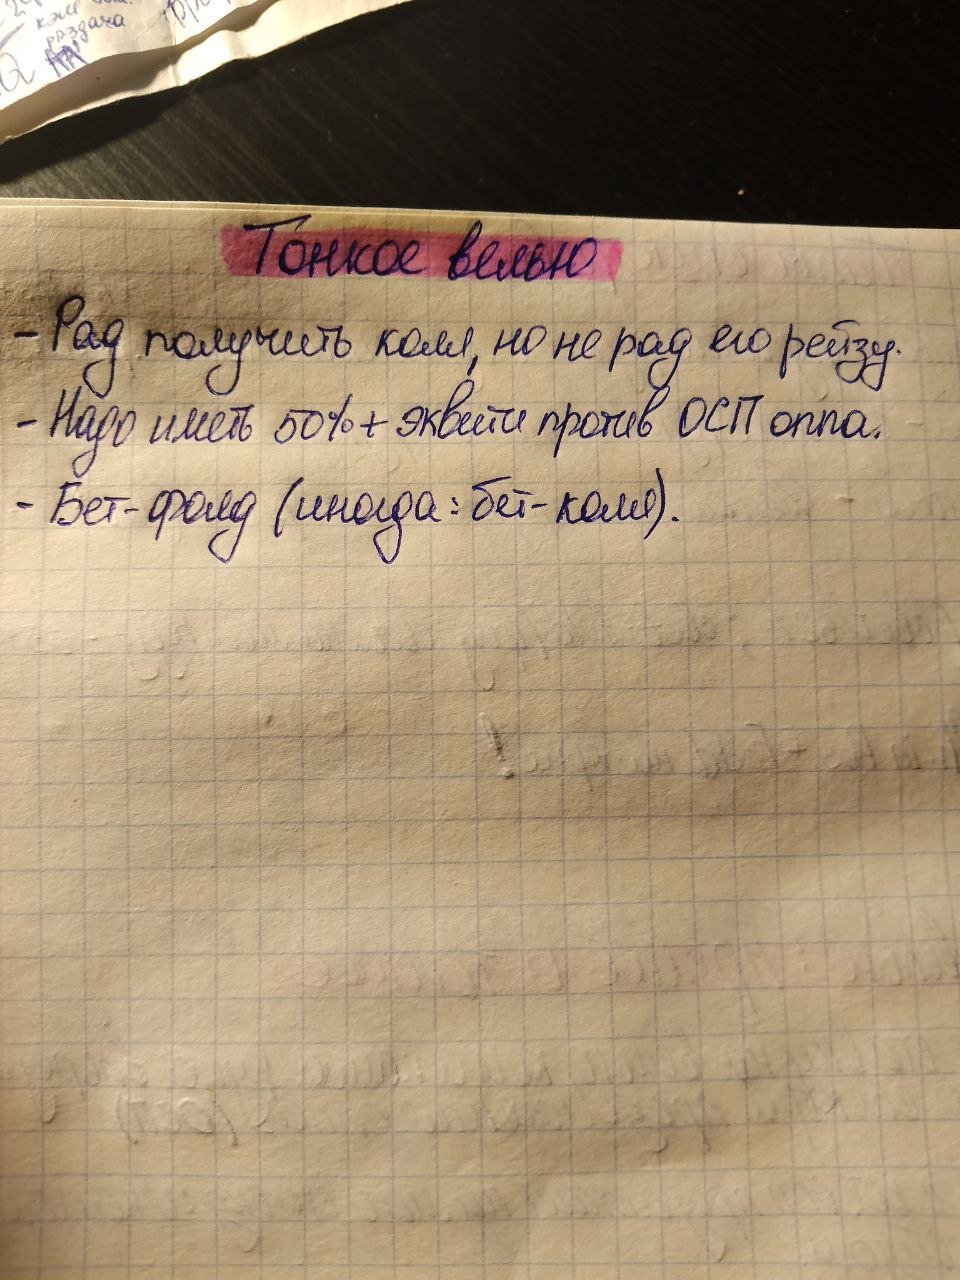 кэш
раздача
Тонкое велью
- Рад получить колл, но не рад его рейзу.
- Надо иметь 50%+ эквити против ОСП оппа.
- Бет-фолд (иногда: бет-колл).